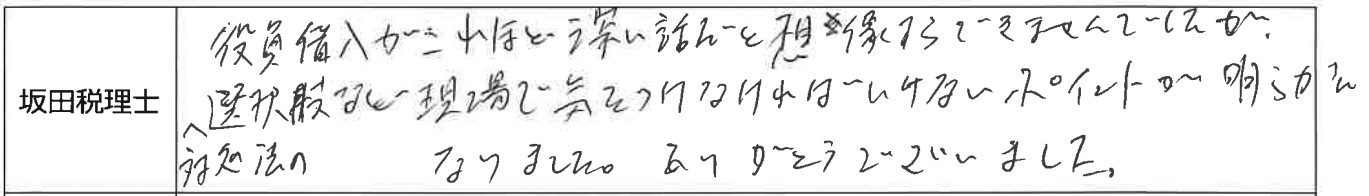 坂田税理士
役員借入がこれほど深い話だと想像すらできませんでしたが、
対処法の選択肢など現場で気をつけなければいけないポイントが明らかに
なりました。ありがとうございました。